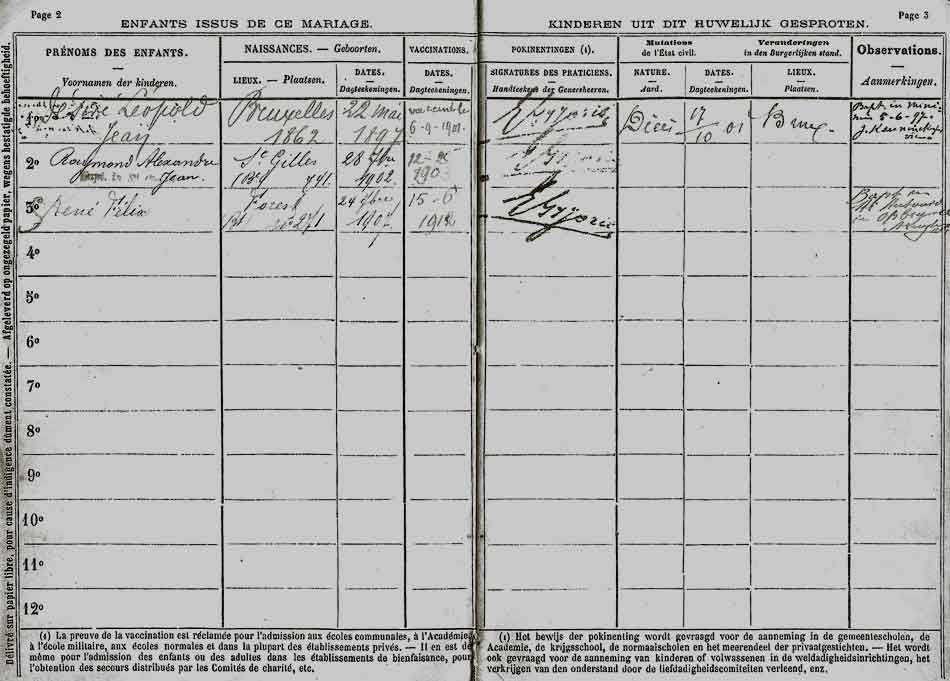 Page 2
Page 3
ENFANTS ISSUS DE CE MARIAGE.
KINDEREN UIT DIT HUWELIJK GESPROTEN.
PRÉNOMS DES ENFANTS.
Voornamen der kinderen.
NAISSANCES. — Geboorten.
LIEUX. — Plaatsen.
DATES.
Dagteekeningen.
VACCINATIONS.
DATES.
Dagteekeningen.
POKINENTINGEN (1).
SIGNATURES DES PRATICIENS.
Handteekens der Geneesheeren.
Mutations
de l'État civil.
NATURE.
Aard.
DATES.
Dagteekeningen.
Veranderingen
in den Burgerlijken stand.
LIEUX.
Plaatsen.
Observations.
Aanmerkingen.
1º Leopold
Jean
Bruxelles
1862
22 mai
1897
6-9-1901
Décès
17
10 01
Brux.
5-6-97
2º Raymond Alexandre
Jean.
St Gilles
741
28
1902
12-
1903
3º René Félix
Forest
nº 271
24
190
15-6
191
4º
5º
6º
7º
8º
9º
10º
11º
12º
(1) La preuve de la vaccination est réclamée pour l'admission aux écoles communales, à l'Académie,
à l'école militaire, aux écoles normales et dans la plupart des établissements privés. — Il en est de
même pour l'admission des enfants ou des adultes dans les établissements de bienfaisance, pour
l'obtention des secours distribués par les Comités de charité, etc.
(1) Het bewijs der pokinenting wordt gevraagd voor de aanneming in de gemeentescholen, de
Academie, de krijgsschool, de normaalscholen en het meerendeel der privaatgestichten. — Het wordt
ook gevraagd voor de aanneming van kinderen of volwassenen in de weldadigheidsinrichtingen, het
verkrijgen van den onderstand door de liefdadigheidscomiteiten verleend, enz.
Délivré sur papier libre, pour cause d'indigence dûment constatée. — Afgeleverd op ongezegeld papier, wegens bestatigde behoeftigheid.